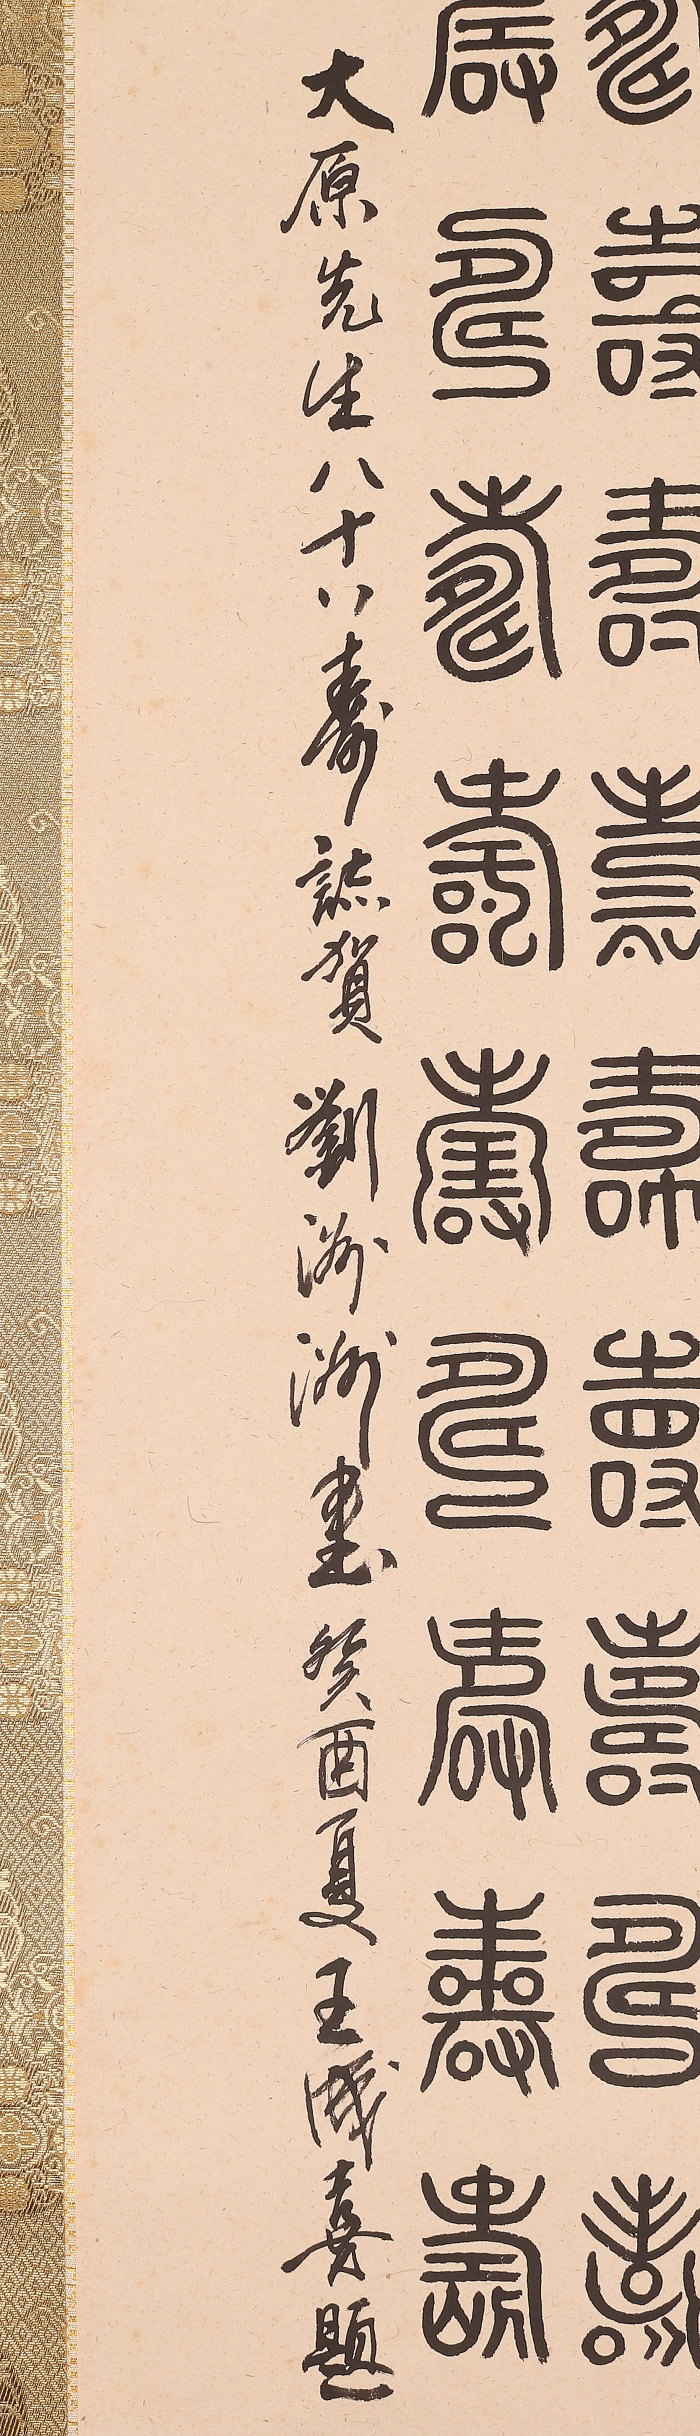 壽壽壽壽壽壽壽壽壽
壽壽壽壽壽壽壽壽壽
大原先生八十八壽誌賀 劉洲洲書 癸酉夏 王成喜題